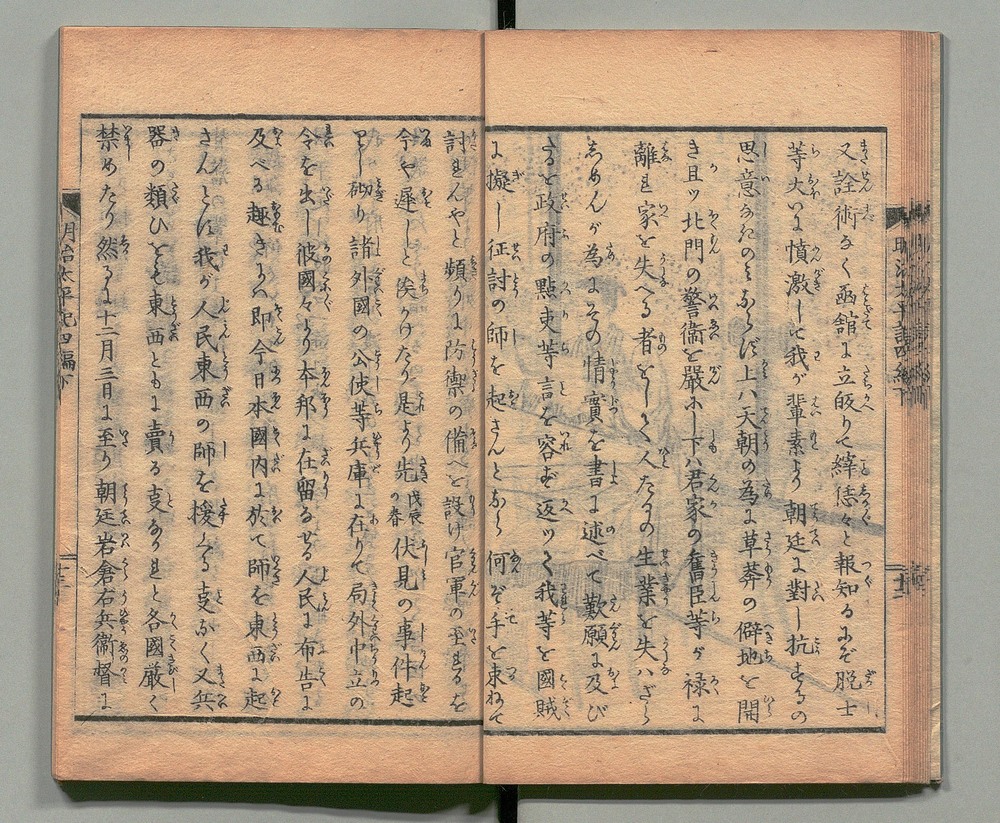 又詮術なく函舘に立皈りて縡恁々と報知るにぞ脱士
等大いに憤激して我が輩素より朝廷に對し抗するの
思意あるのみならず上ハ天朝の為に草莽の僻地を開
き且ツ北門の警衛を嚴にし下ハ君家の舊臣等が禄に
離れ家を失へる者をして人たるの生業を失ハざら
しめんが為にその情實を書に述べて歎願に及び
たるを政府の點吏等言を容れず返ツて我等を國賊
に擬し征討の師を起さんとなら何ぞ手を束ねて
討れんやと頻りに防禦の備へを設け官軍の至るを
今や遲しと俟かけたり是より先戊辰の春伏見の事件起
りし砌り諸外國の公使等兵庫に在りて局外中立の
令を出し彼國々より本邦に在留なせる人民に布告に
及べる趣きハ即今日本國内に於て師を東西に起
さんとに我が人民東西の師を援くる支なく又兵
器の類ひをも東西ともに賣る支なかれと各國嚴く
禁めたり然るに十二月三日に至り朝廷岩倉右兵衞督に
明治太平記四編下
十二